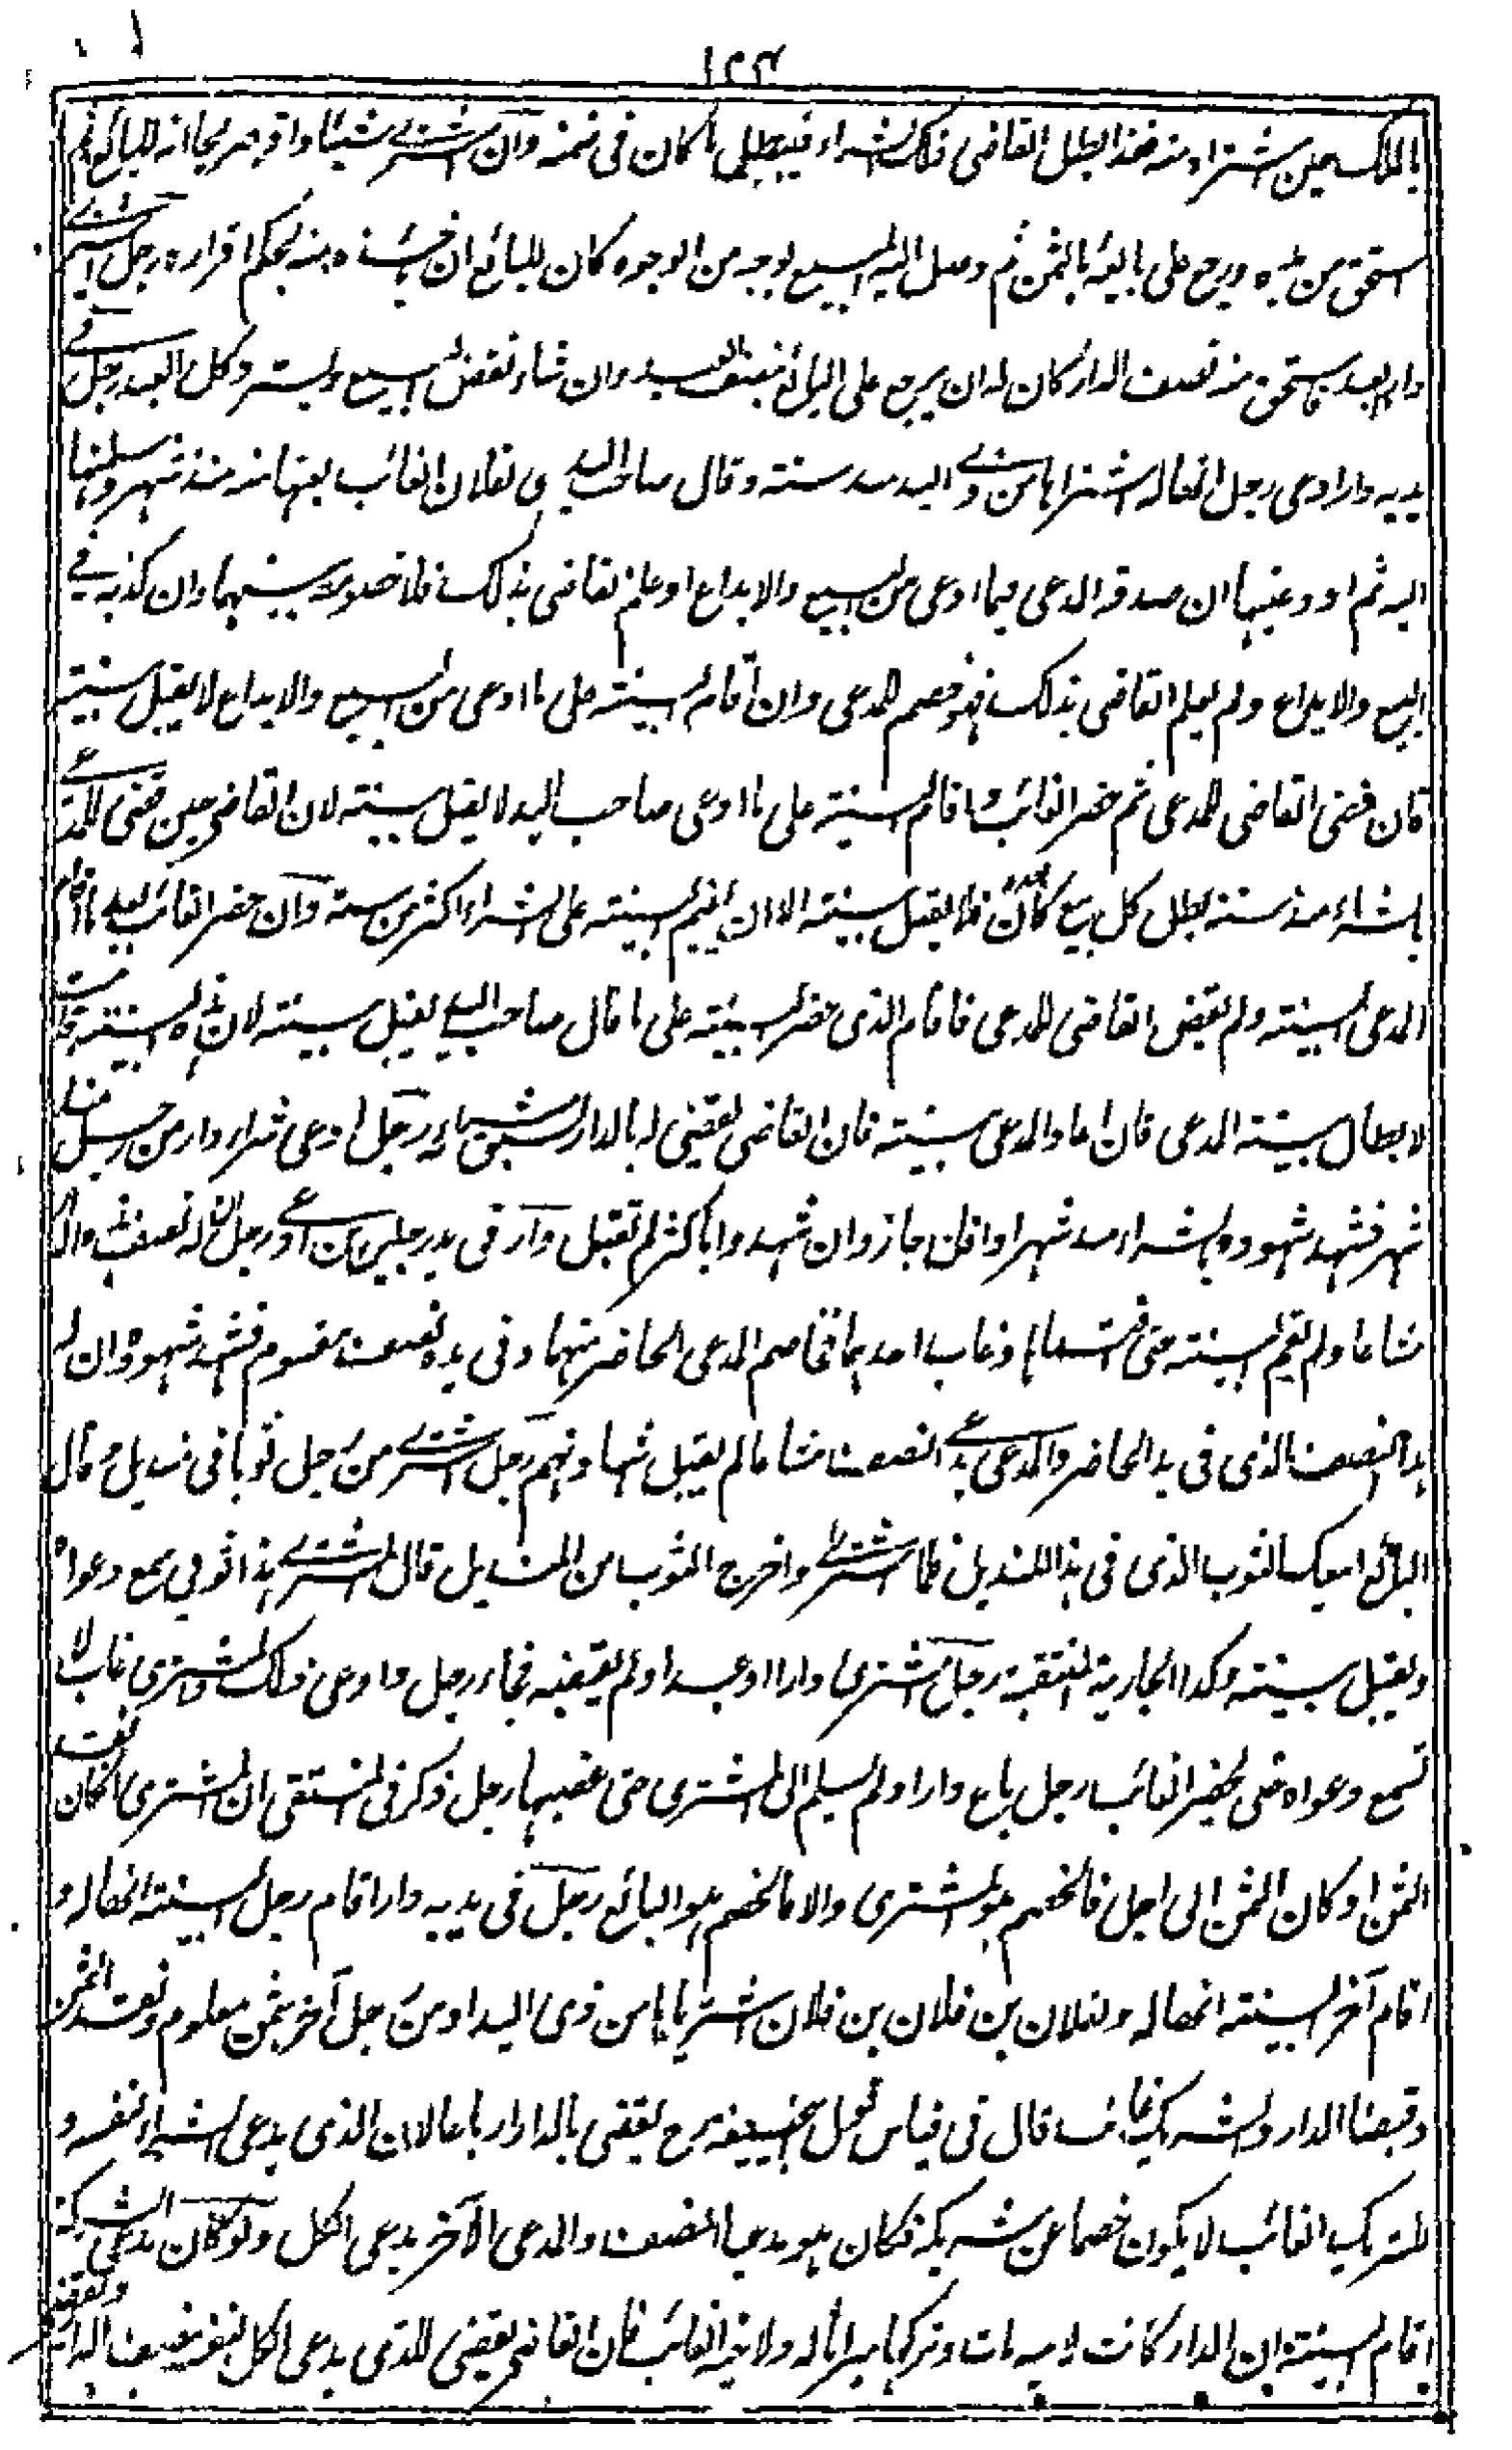 ١٢٣
بالملك حين اشتراه منه فاذا ابطل القاضي ذلك الشراء فيبطل ما كان في ضمنه وان اشترى شيئا واقر صريحا انه للبائع ثم
استحق من يده ورجع على بائعه بالثمن ثم وصل اليه المبيع بوجه من الوجوه كان للبائع ان يأخذه منه بحكم اقراره رجل اشترى
دارا بعبد فاستحق منه نصف الدار كان له ان يرجع على البائع بنصف العبد وان شاء نقض البيع واسترد كل العبد رجل في
يديه دار ادعى رجل انها له اشتراها من ذي اليد منذ سنة وقال صاحب اليد هي لفلان الغائب بعتها منه منذ شهر وسلمتها
اليه ثم اودعنيها ان صدقه المدعي فيما ادعى من البيع والايداع او علم القاضي بذلك فلا خصومة بينهما وان كذبه في
البيع والايداع ولم يعلم القاضي بذلك فهو خصم للمدعي وان اقام البينة على ما ادعى من البيع والايداع لا يقبل بينته
فان قضى القاضي للمدعي ثم حضر الغائب واقام البينة على ما ادعى صاحب اليد لا يقبل بينته لان القاضي حين قضى للمدعي
بالشراء منذ سنة بطل كل بيع كان بعده فلا يقبل بينته الا ان يقيم البينة على الشراء اكثر من سنة وان حضر الغائب بعد ما اقام
المدعي البينة ولم يقض القاضي للمدعي فاقام الذي حضر البينة على ما قال صاحب اليد يقبل بينته لان هذه البينة قامت
لابطال بينة المدعي فان اعاد المدعي بينته فان القاضي يقضي له بالدار رجل ادعى شراء دار من رجل منذ
شهر فشهد شهوده بالشراء منذ شهر او اقل جاز وان شهدوا باكثر لم تقبل دار في يد رجلين ادعى رجل ان له نصف هذه الدار
مشاعا ولم يقم البينة حتى اقتسماها وغاب احدهما فخاصم المدعي الحاضر منهما وفي يده نصف مقسوم فشهد شهوده ان له
هذا النصف الذي في يد الحاضر والمدعي يدعي النصف مشاعا لم يقبل شهادتهم رجل اشترى من رجل ثوبا في منديل وقال
البائع ابيعك الثوب الذي في هذا المنديل فلما اشترى واخرج الثوب من المنديل قال المشتري هذا ثوبي يسمع دعواه
ويقبل بينته وكذا الجارية المنتقبة رجل اشترى دارا او عبدا ولم يقبضه فجاء رجل وادعى ذلك والمشتري غائب لا
تسمع دعواه حتى يحضر الغائب رجل باع دارا ولم يسلم الى المشتري حتى غصبها رجل ذكر في المنتقى ان المشتري ان كان نقد
الثمن او كان الثمن الى اجل فالخصم هو المشتري والا فالخصم هو البائع رجل في يديه دار اقام رجل البينة انها له و
اقام آخر البينة انها له ولفلان بن فلان بن فلان اشترياها من ذي اليد او من رجل آخر بثمن معلوم ونقدا الثمن
وقبضا الدار والشريك غائب قال في قياس قول ابي حنيفة رح يقضى بالدار ارباعا لان الذي يدعي الشراء لنفسه و
للشريك الغائب لا يكون خصما عن شريكه فكان هو مدعيا النصف والمدعي الآخر يدعي الكل ولو كان مدعي الشركة
اقام البينة ان الدار كانت لابيه مات وتركها ميراثا له ولاخيه الغائب فان القاضي يقضي للذي يدعي الكل لنفسه بنصف الدار ويقضي